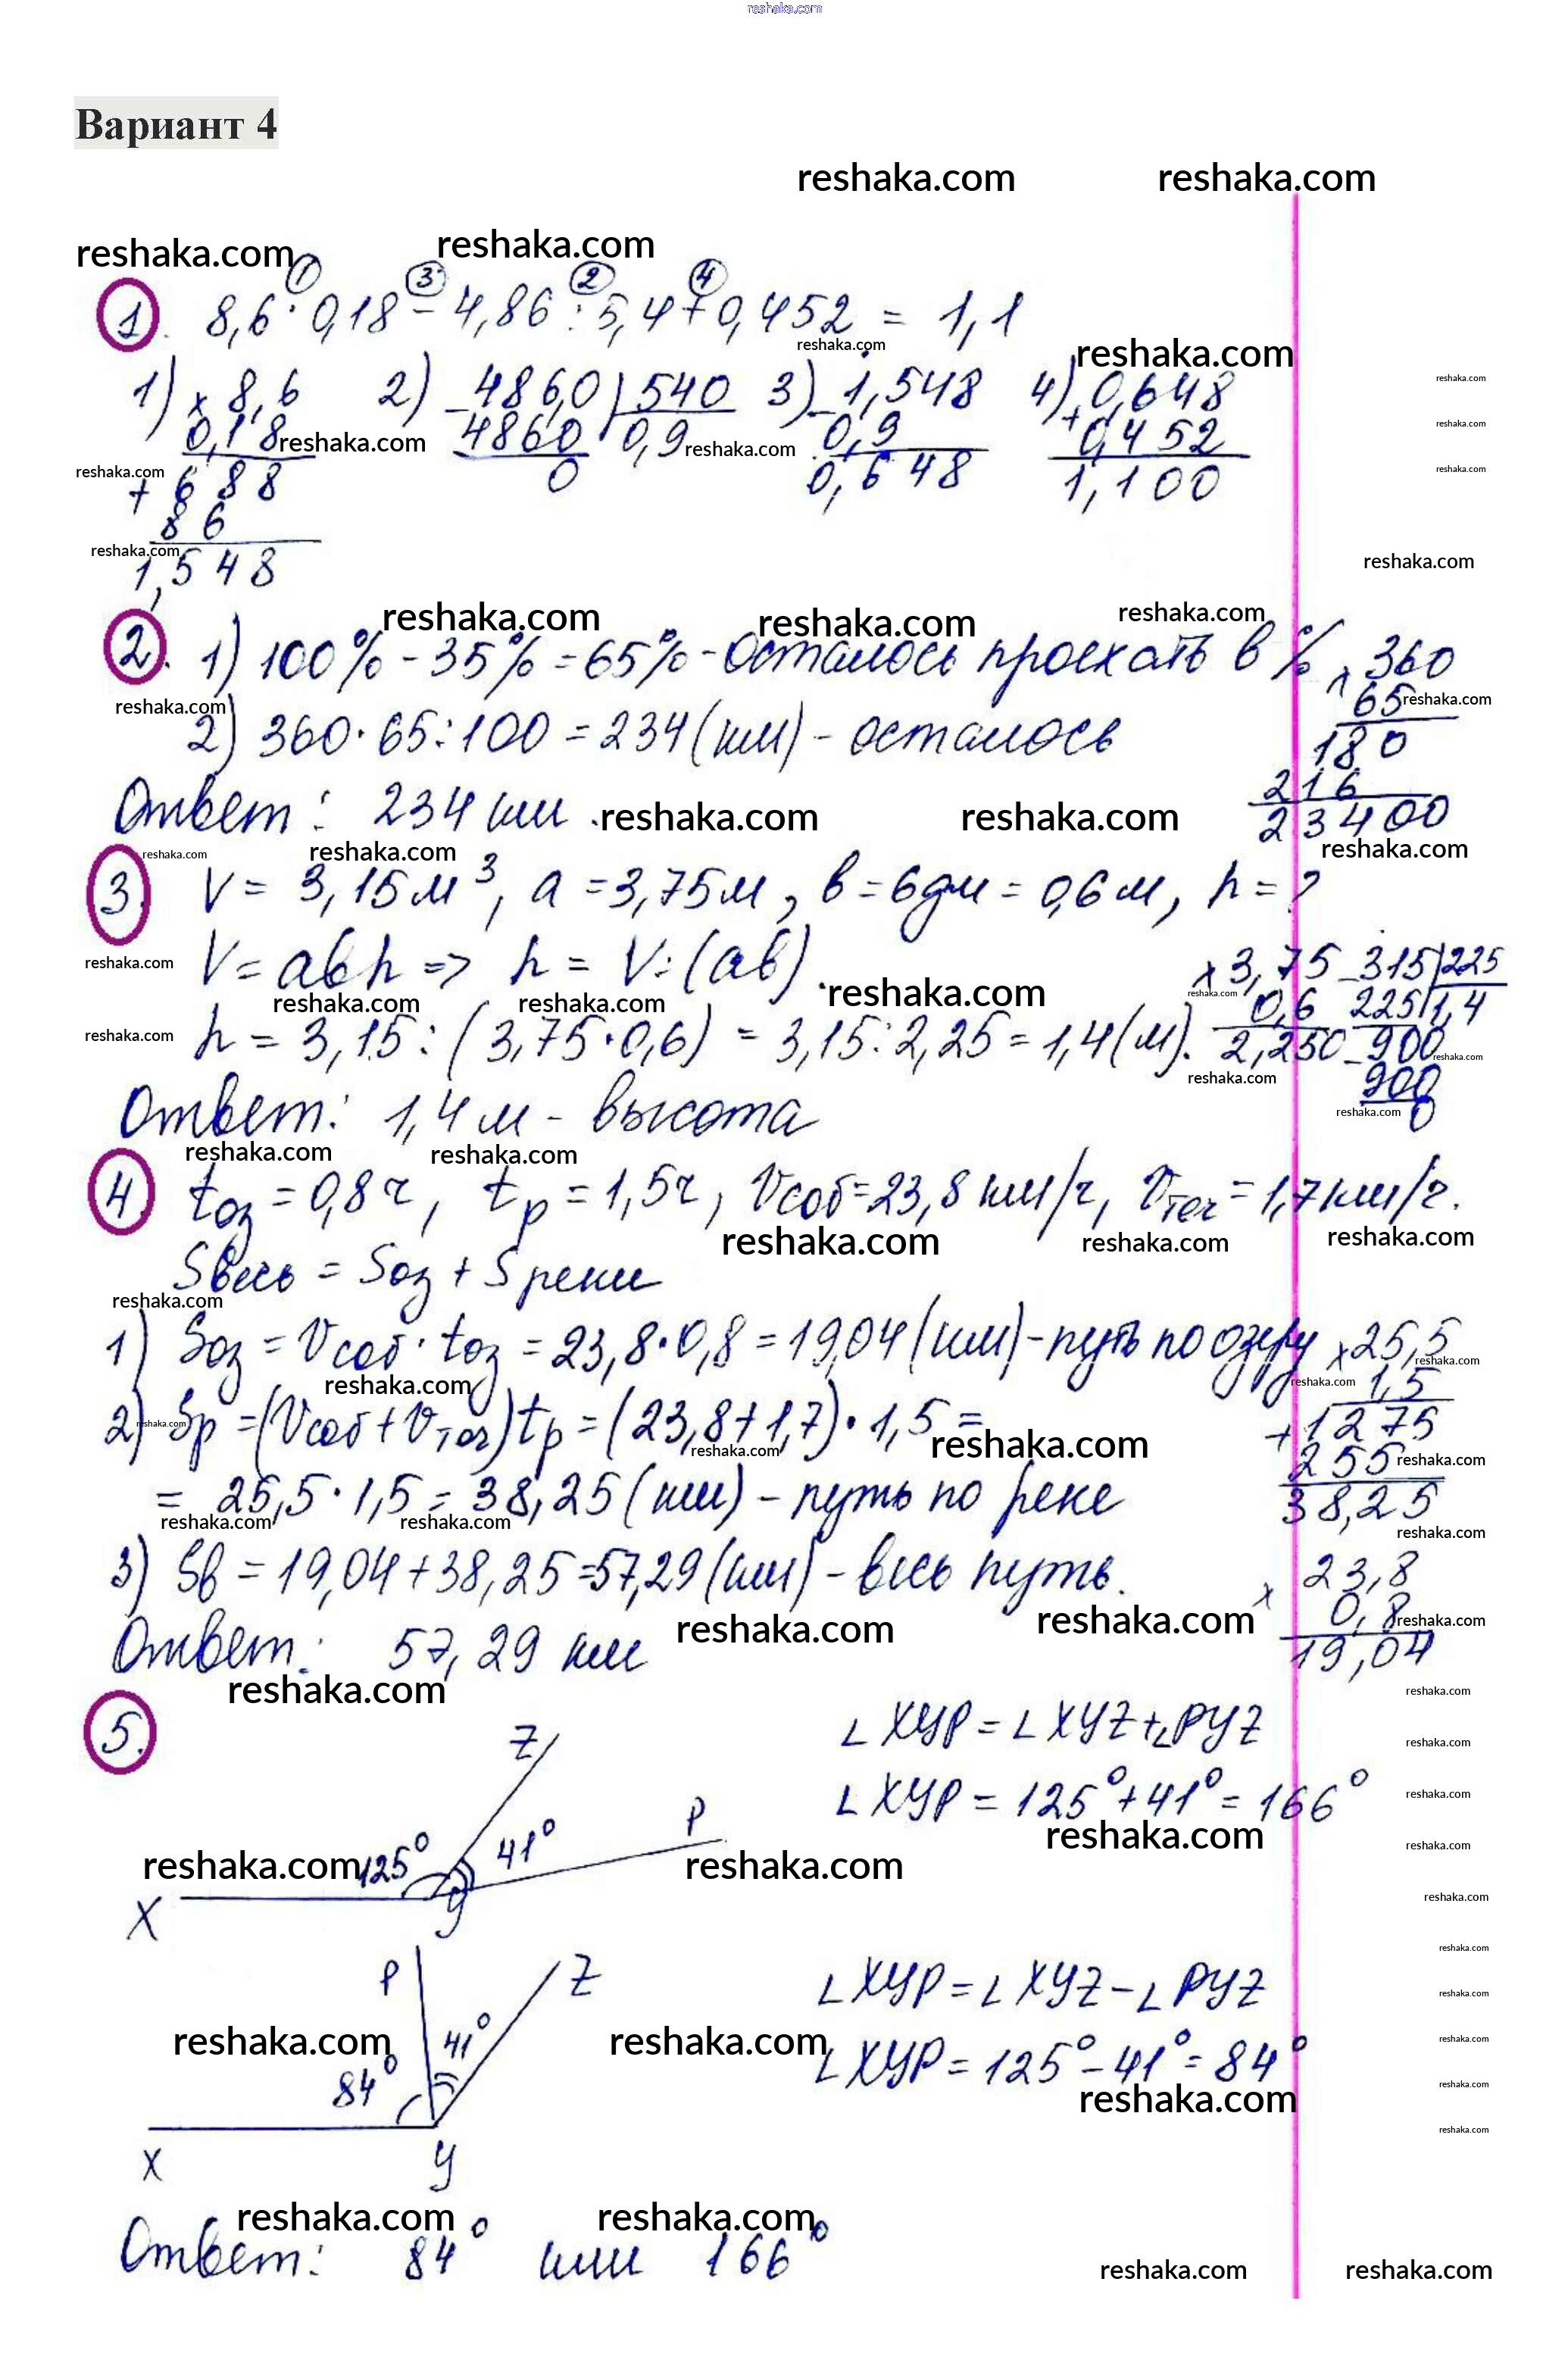 reshaka.com
Вариант 4
reshaka.com reshaka.com
reshaka.com reshaka.com
① ③ ② ④
1. 8,6 · 0,18 - 4,86 : 5,4 + 0,452 = 1,1
reshaka.com reshaka.com reshaka.com
1) × 8,6 2) - 486,0 | 540 3) - 1,548 4) + 0,648
0,18 4860 0,9 0,9 0,452
reshaka.com reshaka.com reshaka.com
+ 688 0 0,648 1,100
reshaka.com reshaka.com
86
reshaka.com reshaka.com
1,548
reshaka.com reshaka.com reshaka.com
2. 1) 100% - 35% = 65% - осталось проехать в % × 360
reshaka.com 65 reshaka.com
2) 360 · 65 : 100 = 234 (км) - осталось 180
216
Ответ: 234 км. reshaka.com reshaka.com 23400
reshaka.com reshaka.com reshaka.com
3. V = 3,15 м³, a = 3,75 м, в = 6 дм = 0,6 м, h = ?
reshaka.com V = авh => h = V : (ав). × 3,75 - 315 | 225
reshaka.com reshaka.com reshaka.com reshaka.com 0,6 225 | 1,4
reshaka.com h = 3,15 : (3,75 · 0,6) = 3,15 : 2,25 = 1,4 (м). 2,250 - 900 reshaka.com
reshaka.com 900
Ответ: 1,4 м - высота reshaka.com 0
reshaka.com reshaka.com
4. tоз = 0,8 ч, tр = 1,5 ч, Vсоб = 23,8 км/ч, Vтеч = 1,7 км/ч.
reshaka.com reshaka.com reshaka.com
Sвесь = Sоз + Sреки
reshaka.com
1) Sоз = Vсоб · tоз = 23,8 · 0,8 = 19,04 (км) - путь по озеру × 25,5
reshaka.com reshaka.com reshaka.com 1,5
2) Sр = (Vсоб + Vтеч) tр = (23,8 + 1,7) · 1,5 = + 1275
reshaka.com reshaka.com reshaka.com 255 reshaka.com
= 25,5 · 1,5 = 38,25 (км) - путь по реке 38,25
reshaka.com reshaka.com reshaka.com
3) Sв = 19,04 + 38,25 = 57,29 (км) - весь путь. × 23,8
reshaka.com reshaka.com 0,8 reshaka.com
Ответ: 57,29 км 19,04
reshaka.com reshaka.com
5. Z ∠XYP = ∠XYZ + ∠PYZ
reshaka.com
P ∠XYP = 125° + 41° = 166° reshaka.com
reshaka.com reshaka.com
reshaka.com 125° 41° reshaka.com
X Y reshaka.com
reshaka.com
P Z ∠XYP = ∠XYZ - ∠PYZ
reshaka.com
reshaka.com 41° reshaka.com reshaka.com
84° ∠XYP = 125° - 41° = 84°
reshaka.com reshaka.com
reshaka.com
X Y
reshaka.com reshaka.com
Ответ: 84° или 166°
reshaka.com reshaka.com